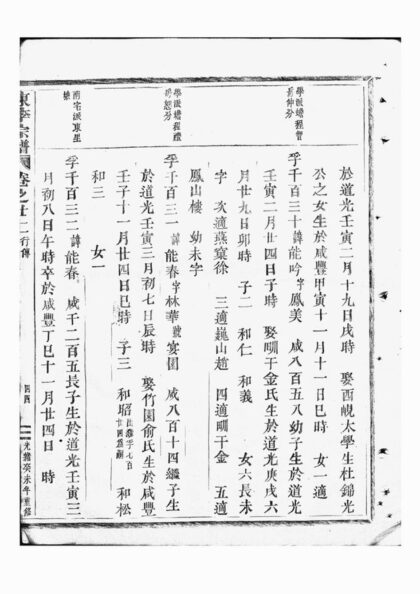 學派蟾程曾
房仲分
於道光壬寅二月十九日戌時 娶西峴太學生杜錦光
公之女生於咸豐甲寅十一月十一日巳時 女一適
孚千百三十諱能吟字鳳美 咸八百五八幼子生於道光
壬寅二月廿四日子時 娶㽦干金氏生於道光庚戌六
月廿九日卯時 子二 和仁 和義 女六長未
字 次適燕窠徐 三適巍山趙 四適㽦干金 五適
鳳山樓 幼未字
學派蟾程禮
房恕分
孚千百三一諱能春字林華號宴園 咸八百十四繼子生
於道光壬寅三月初七日辰時 娶竹園俞氏生於咸豐
壬子十一月廿四日巳時 子三 和昭 和松
和三 女一
南宅派東星
孚千百三二諱能春 咸千二百五長子生於道光壬寅三
月初八日午時卒於咸豐丁巳十一月廿四日 時
宗譜 卷之廿二 行傳
四四
光緒癸未年重修